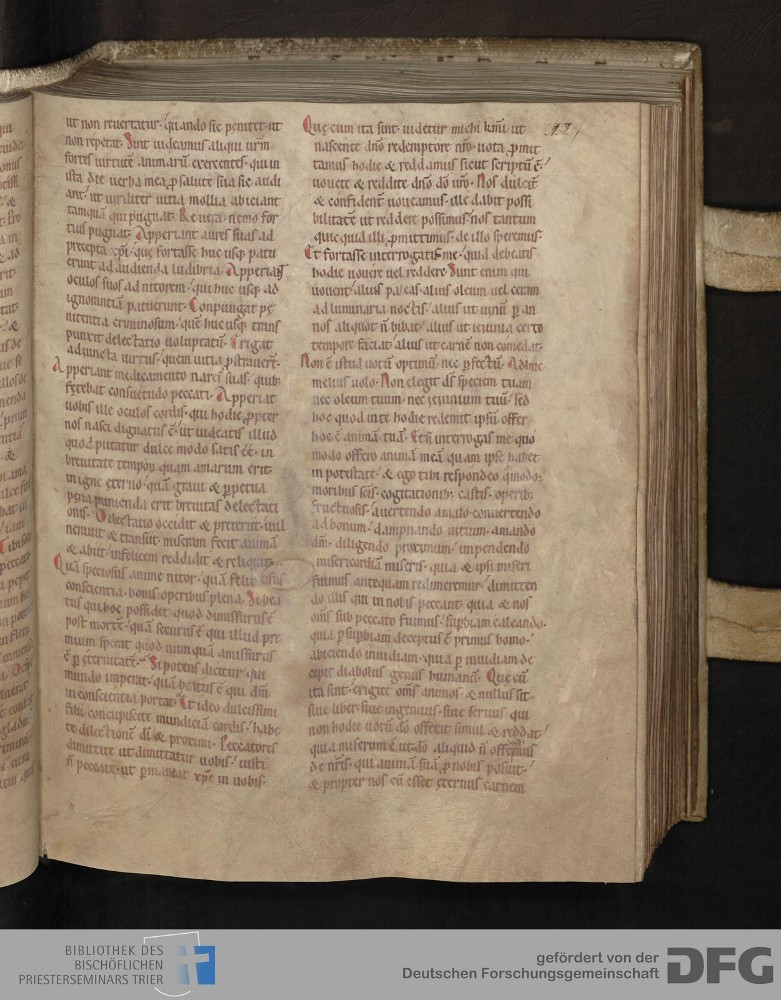 ut non reuertatur· quando sic penitet· ut
non repetat· Sunt uideamus aliqui urm̄
fortes uirtute animarū exercentes· qui in
ista die uerba mea ꝓ salute sua sic audi
ant· ut uiriliter uitia mollia abiciant
tamquā qui pugnat· Re uera nemo for
tius pugnat· Apperiant aures suas ad
precepta xp̄i· que fortasse huc usq; patu
erunt ad audienda ludibria· Apperias
oculos suos ad nitorem· qui huc usq; ad
ignominiā patuerunt· Conpungat pę
nitentia criminosum· quē huc usq; trans
punxit delectatio uoluptatū· Erigat
adiuncta uirtus· quem uitia ꝓstrauer̄t·
Apperiant medicamento nares suas· quib;
fętebat consuetudo peccati· Apperiat
uobis ille oculos cordis· qui hodie ꝓpter
nos nasci dignatus ē· ut uideatis illud
quod putatur dulce modo satis eē· in
breuitate tempoꝝ quam amarum erit·
in igne ęterno· quā graui & ꝑpetua
pena punienda erit breuitas delectati
onis· Delectatio occidit & preteriit· uul
nerauit & transiit· miseram fecit animā
& abiit· infelicem reddidit & reliquit·
Quā speciosus anime nitor· quā felix ipsius
conscientia· bonis operibus plena· Si bea
tus qui hoc possidet· quod dimissurus ē
post mortē· quā securus ē qui illud pre
mium sperat quod numquā amissurus
ē ꝑ ęternitatē· Si potens dicitur qui
mundo imperat· quā beatus ē qui dm̄
in conscientia portat· Et ideo dulcissimi
filii concupiscite mundiciā cordis· habe
te dilectionē di & proximi· Peccatores
dimittite ut dimittatur uobis· iusti
n̄ peccate· ut ꝑmaneat xp̄c in uobis·
Quę cum ita sint· uidetur michi km̄i ut
nascente dn̄o redemptore nr̄o· uota ꝓmit
tamus hodie & reddamus sicut scriptū ē·
uouete & reddite dn̄o dō nr̄o· Nos dulcit̄
& confident̄ uoueamus· ille dabit possi
bilitatē ut reddere possimus· nos tantum
quicquid illi ꝓmittimus· de illo speremus·
Et fortasse interrogatis me· quid debeatis
hodie uouere uel reddere· Sunt enim qui
uouent· alius palleas· alius oleum uel ceram
ad luminaria noctis· alius ut uinū ꝑ an
nos aliquot n̄ bibat· alius ut ieiunia certo
tempore faciat· alius ut carnē non comedat·
Non ē istud uotū optimū· nec ꝑfectū· Adhuc
melius uolo· Non elegit ds̄ speciem tuam
nec oleum tuum· nec ieiunium tuū· sed
hoc quod in te hodie redemit ipsū offer
hoc ē animā tuā· Et si interrogas me quo
modo offero animā meā quam ipse habet
in potestate· & ego tibi respondeo q̄modo·
moribus scis· cogitationib; castis· operib;
fructuosis· auertendo a malo· conuertendo
ad bonum· dampnando uitium· amando
dm̄· diligendo proximum· impendendo
misericordiā miseris· quia & ipsi miseri
fuimus antequam redimeremur· dimitten
do illis qui in nobis peccant· quia & nos
om̄s sub peccato fuimus· supbiam calcando·
quia ꝑ supbiam deceptus ē primus homo·
abiciendo inuidiam· quia ꝑ inuidiam de
cepit diabolus genus humanū· Quę cū
ita sint· erigite om̄s animos· & nullus sit·
siue liber· siue ingenuus· siue seruus· qui
non hodie uotū dō offerat simul & reddat·
quia miserum ē ut dō aliquid n̄ offeramus
de nr̄is· qui animā suā ꝓ nobis posuit·
& propter nos cū esset ęternus carnem
BIBLIOTHEK DES
BISCHÖFLICHEN
PRIESTERSEMINARS TRIER
gefördert von der
Deutschen Forschungsgemeinschaft
DFG